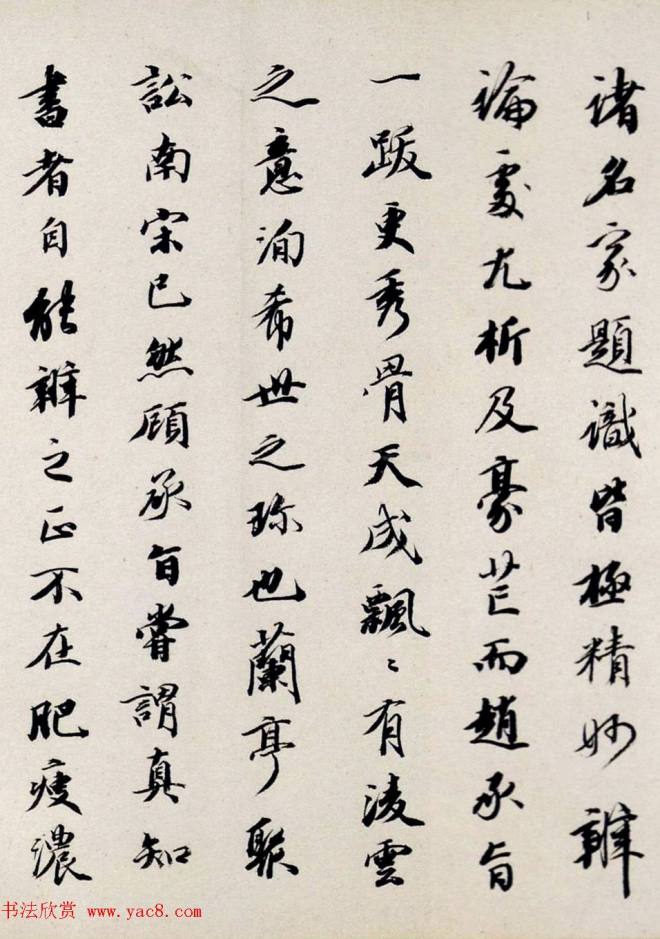 諸名家題識皆極精妙辨
論處尤析及豪芒而趙承旨
一跋更秀骨天成飄〻有淩雲
之意洵希世之珎也蘭亭聚
訟南宋已然顧承旨嘗謂真知
書者自能辨之正不在肥瘦濃
书法欣赏 www.yac8.com